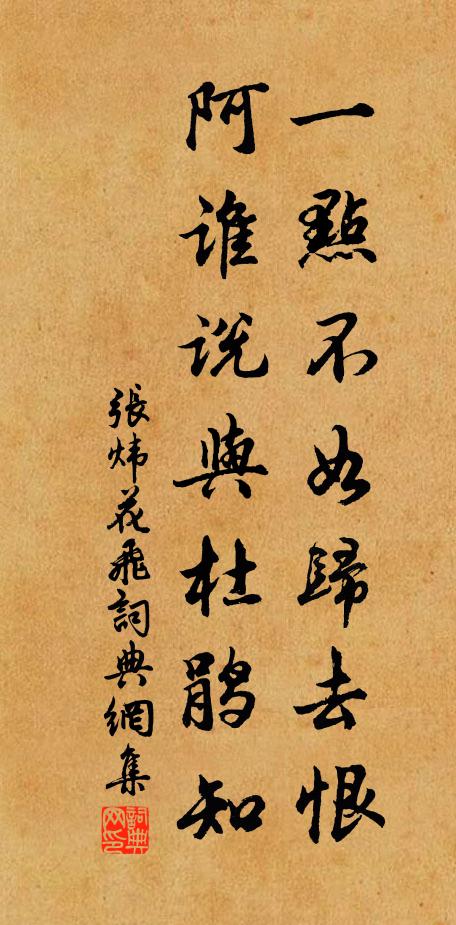 一點不如歸去恨
阿誰説與杜鵑知
張炜花飛詞典網集
詞典网印